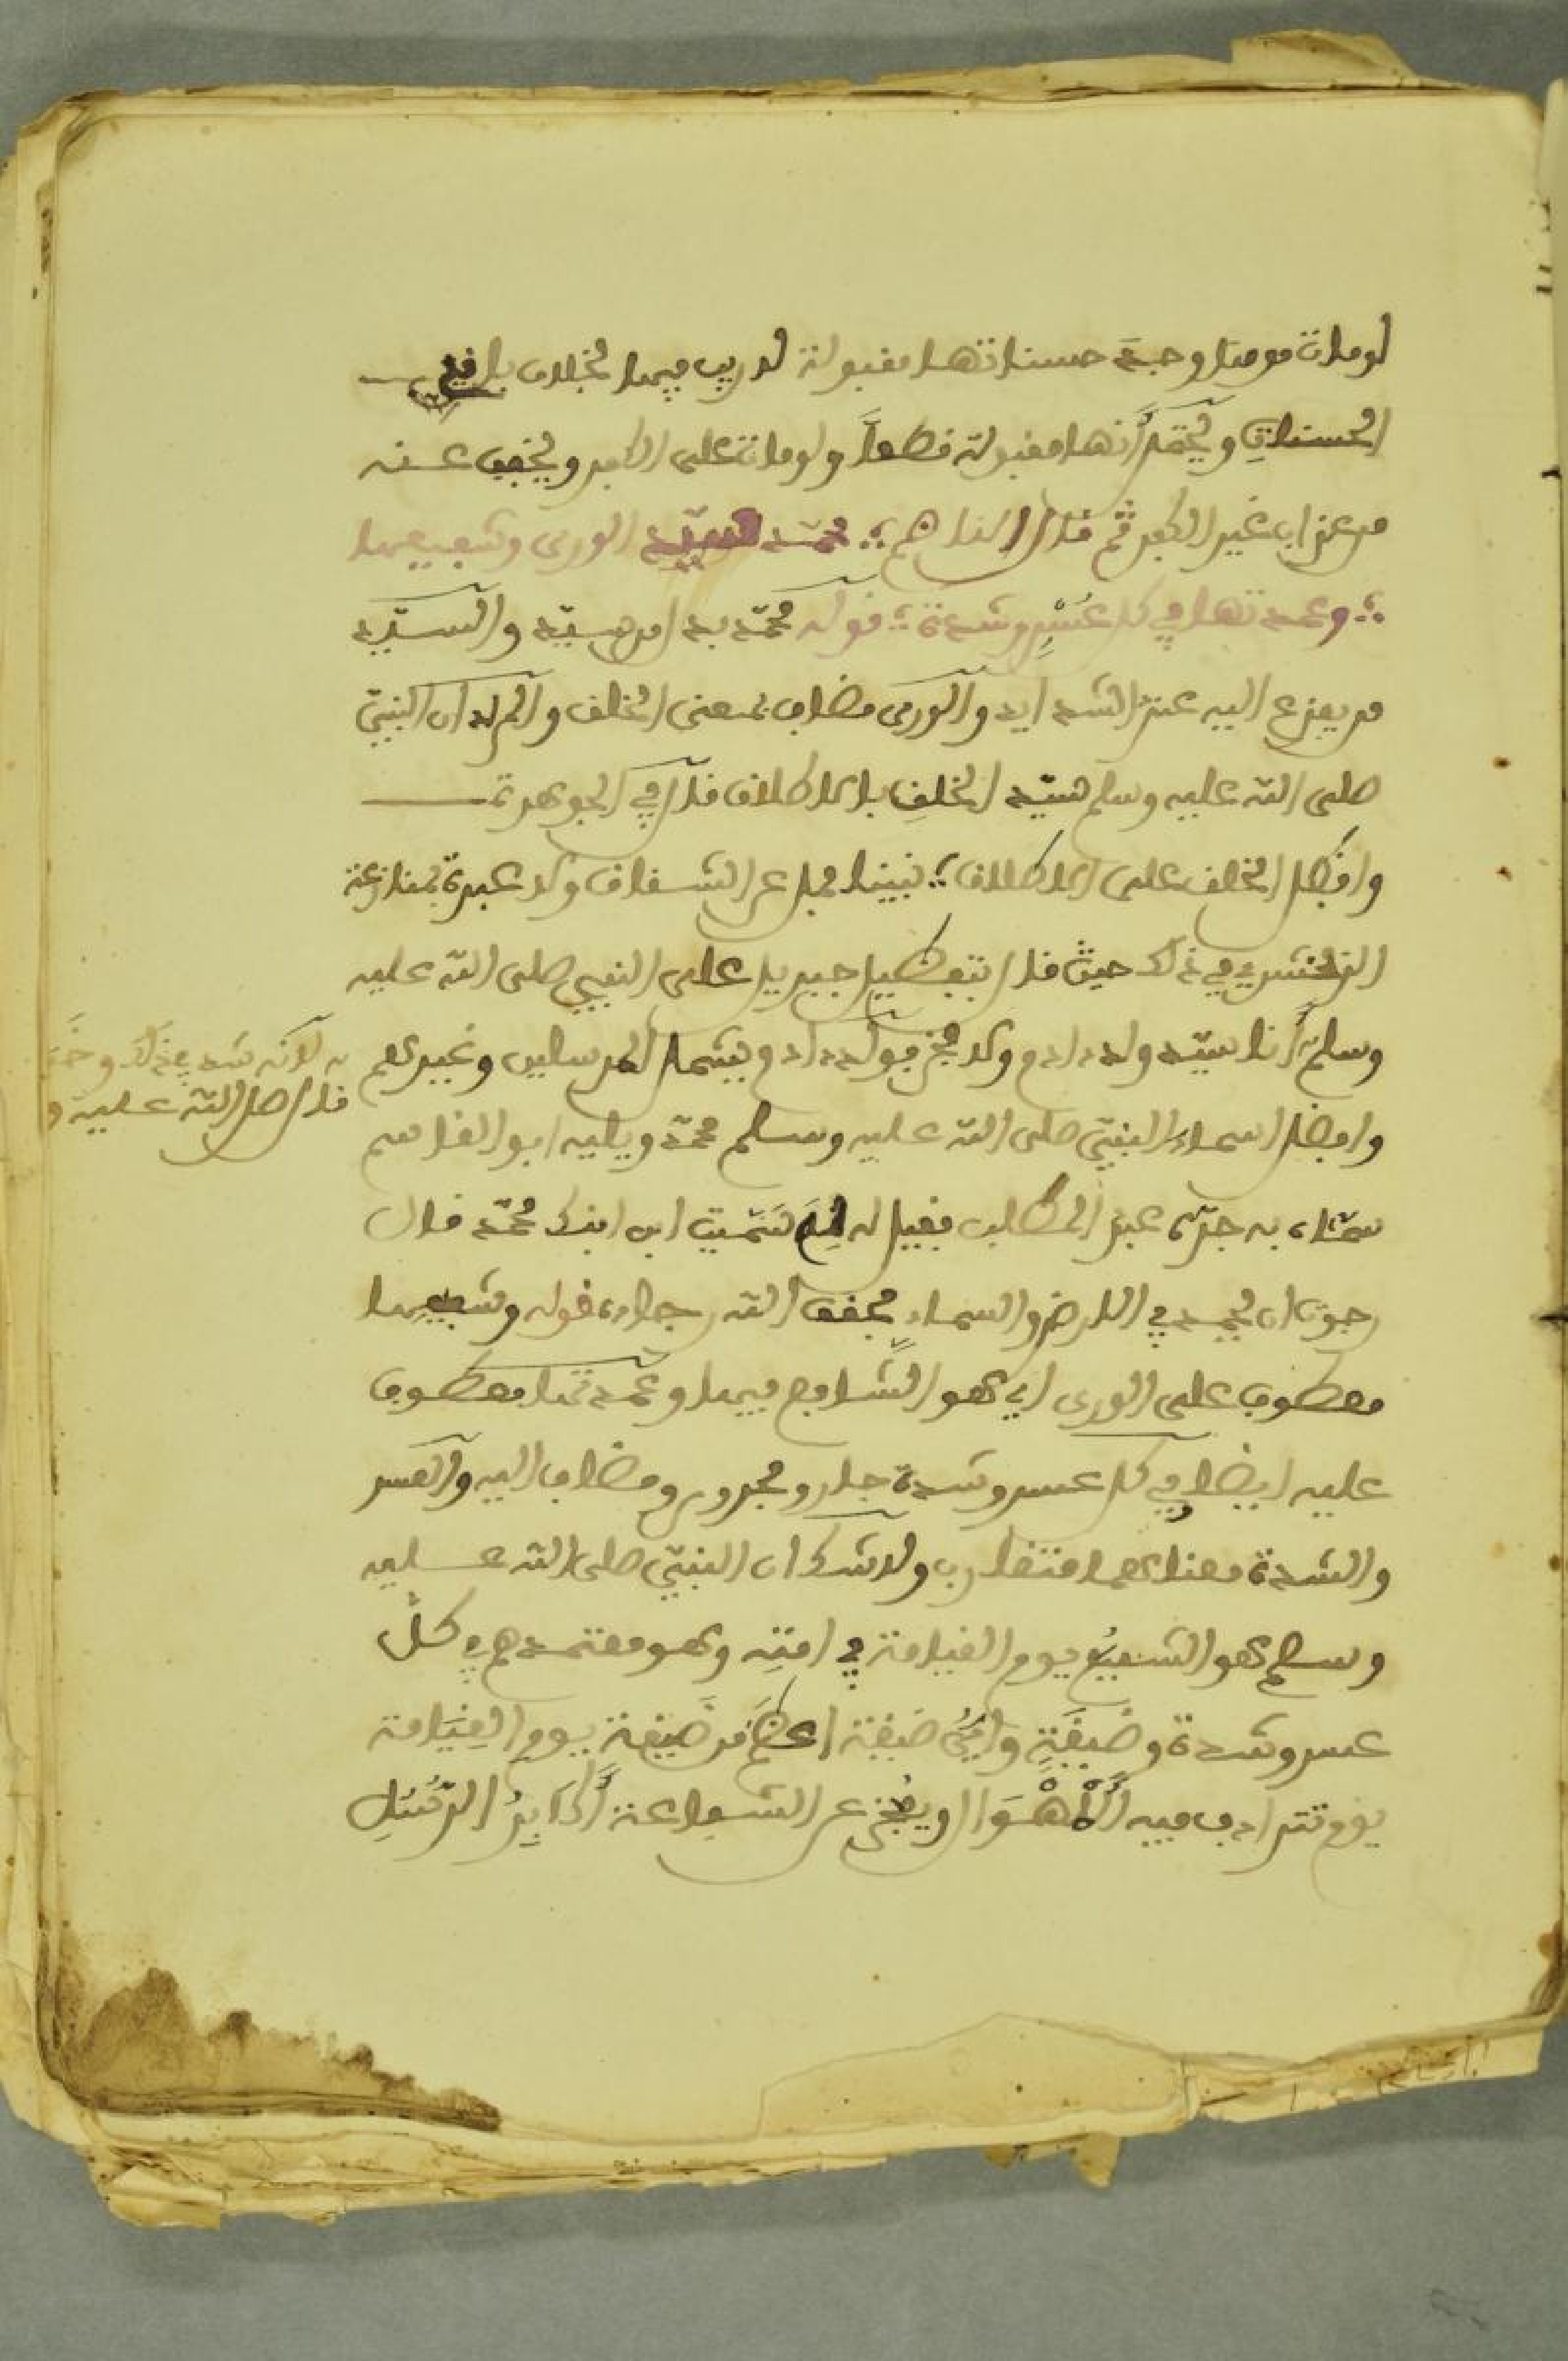 لو مات مومنا وجد حسناتها مقبولة لا ريب فيها بخلاف باقي
الحسنات ويحتمل أنها مقبولة قطعاً ولو مات على الكفر ويخفف عنه
من عذاب غير الكفر ثم قال الناظم ؛ محمد سيد الورى وشفيعها
؛ وعمدتها في كل عُسْرٍ وشدة ؛ قوله محمد بدل من سيد والسيد
من يفزع اليه عند الشدايد والورى مضاف بمعنى الخلق والمراد ان النبيّ
صلى الله عليه وسلم سيد الخلق بالاطلاق قال في الجوهرة
وافضل الخلق على الاطلاق ؛ نبينا فمل عن الشقاق ولا عبرة بمنازعة
الزمخشري في ذلك حيث قال بتفضيل جبريل على النبي صلى الله عليه
وسلم أنا سيد ولد ادم ولا فخر فولد ادم يشمل المرسلين وغيرهم
به لانه شد في ذلك و
قال صلى الله عليه و
وافضل اسماء النبيّ صلى الله عليه وسلم محمد ويليه ابو القاسم
سمّاه به جدّه عبد المطلب فقيل له لِمَ سَمَّيت ابن ابنك محمّد قال
رجوت ان يحمد في الارض والسماء فحقق الله رجاءه قوله وشفيعها
معطوف على الورى اي هو الشّافع فيها وعمدتها معطوف
عليه ايضا في كل عسر وشدة جار ومجرور ومضاف اليه والعسر
والشدة معناهما متقارب ولا شك ان النبيّ صلى الله عليه
وسلم هو الشفيع يوم القيامة في امته وهو معتمدهم في كل
عسر وشدة وضَيقَةٍ وأيُّ ضيقة اعظم من ضَيقة يوم القِيَامة
يوم تترادف فيه الأهْوَال ويعجز عن الشفاعة أكابِرُ الرُّسُلِ